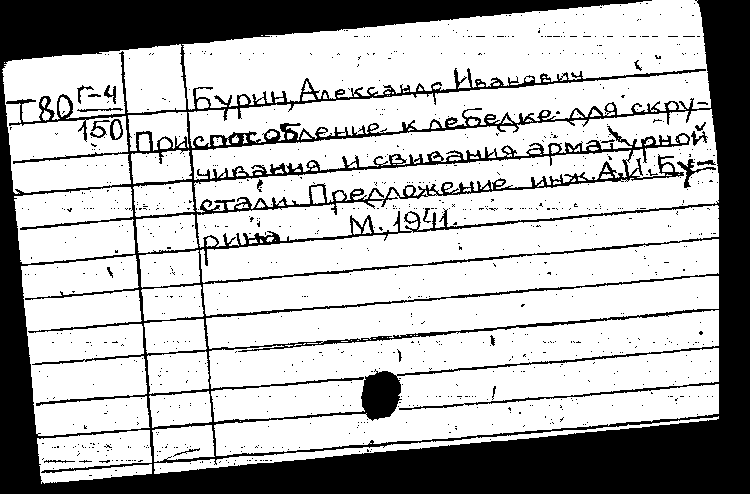 Т80 Г-4
150
Бурин, Александр Иванович
Приспособление к лебедке для скру-
чивания и свивания арматурной
стали. Предложение инж. А.И. Бу-
рина. М., 1941.